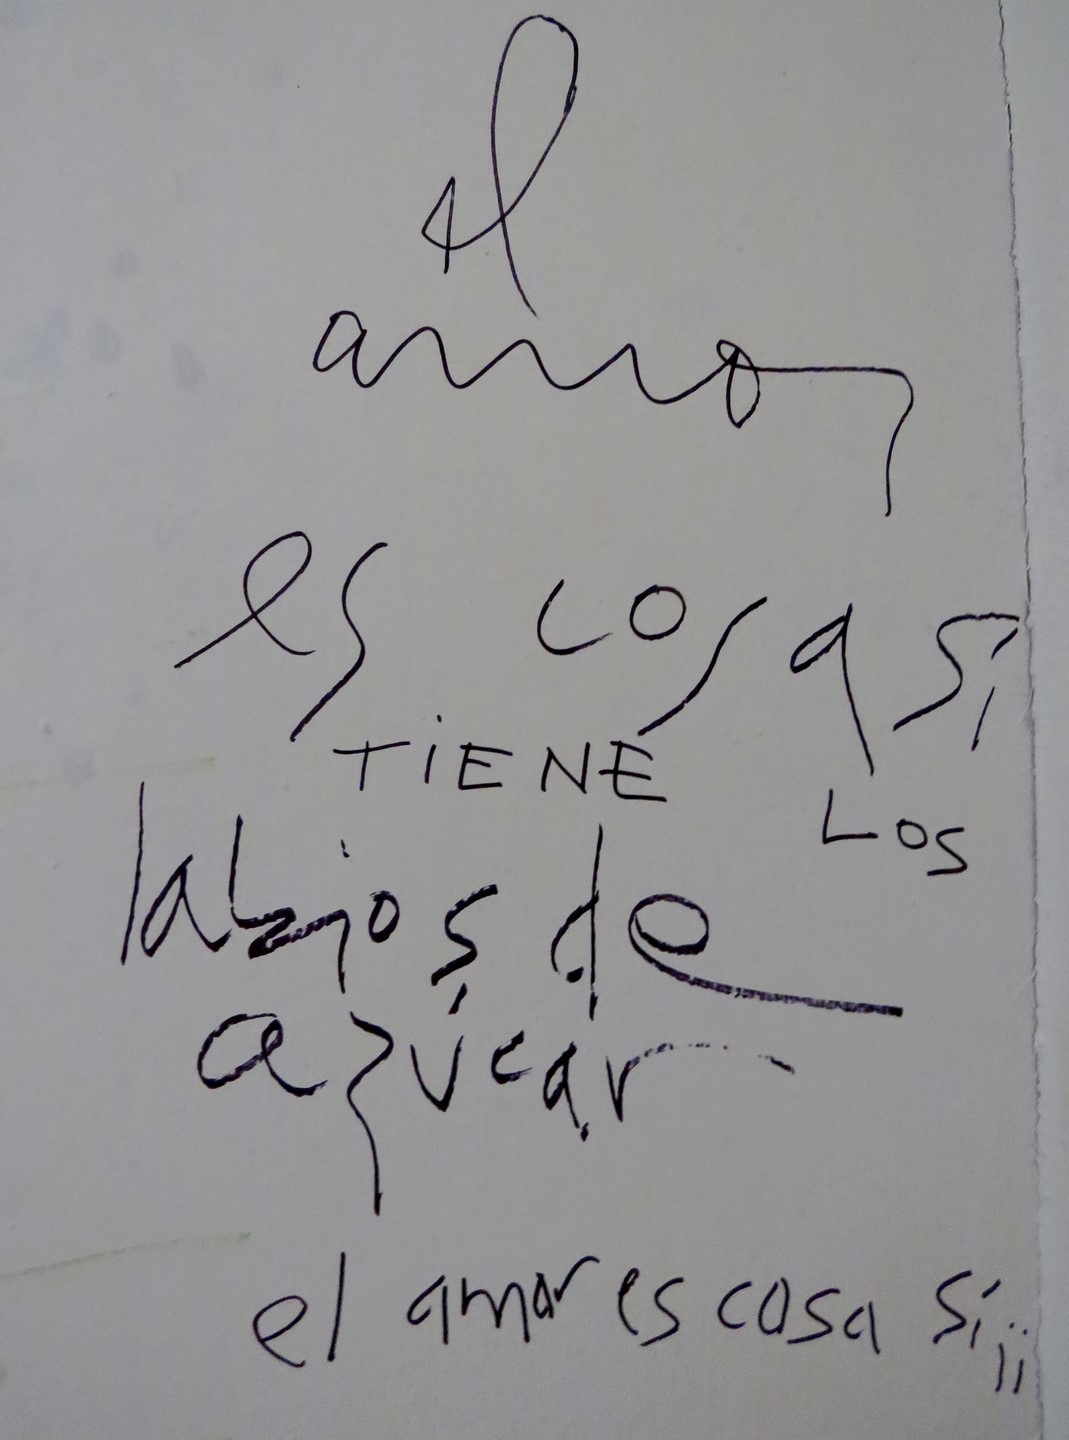 el
amor
es cosa sí
TiENE
LOS
labios de
azúcar
el amor es cosa sí¡¡